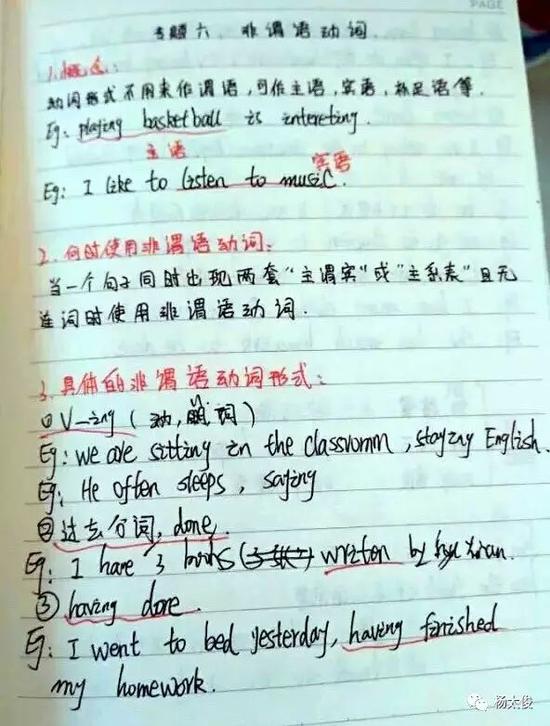 PAGE
专题六、非谓语动词.
1.概念:
动词形式不用来作谓语,可作主语,宾语,补足语等.
Eg: playing basketball is intereting.
主语
宾语
Eg: I like to listen to music.
2.何时使用非谓语动词:
当一个句子同时出现两套"主谓宾"或"主系表"且无
连词时使用非谓语动词.
3.具体的非谓语动词形式:
①V-ing (动, 词)
Eg: we are sitting in the classromm, English.
Eg: He often sleeps, saying
②过去分词, done.
Eg: I have 3 books written by
③ having done.
Eg: I went to bed yesterday, having finished
my homework.
杨太俊